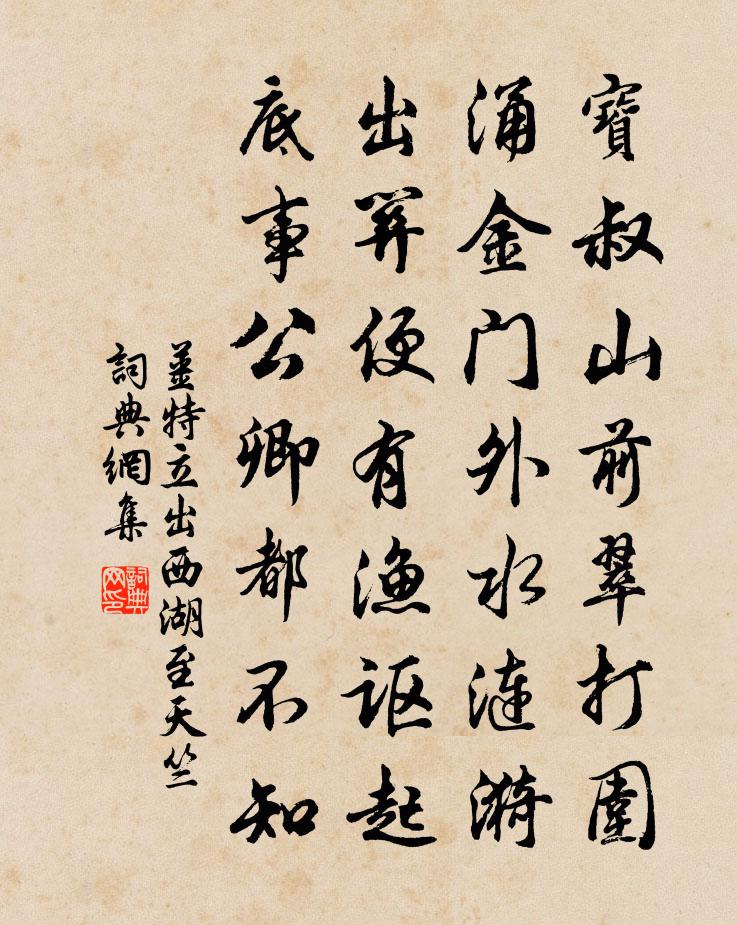 寶叔山前翠打圍
涌金門外水漣漪
出關便有漁謳起
底事公卿都不知
薑特立出西湖至天竺
詞典網集
詞典网印